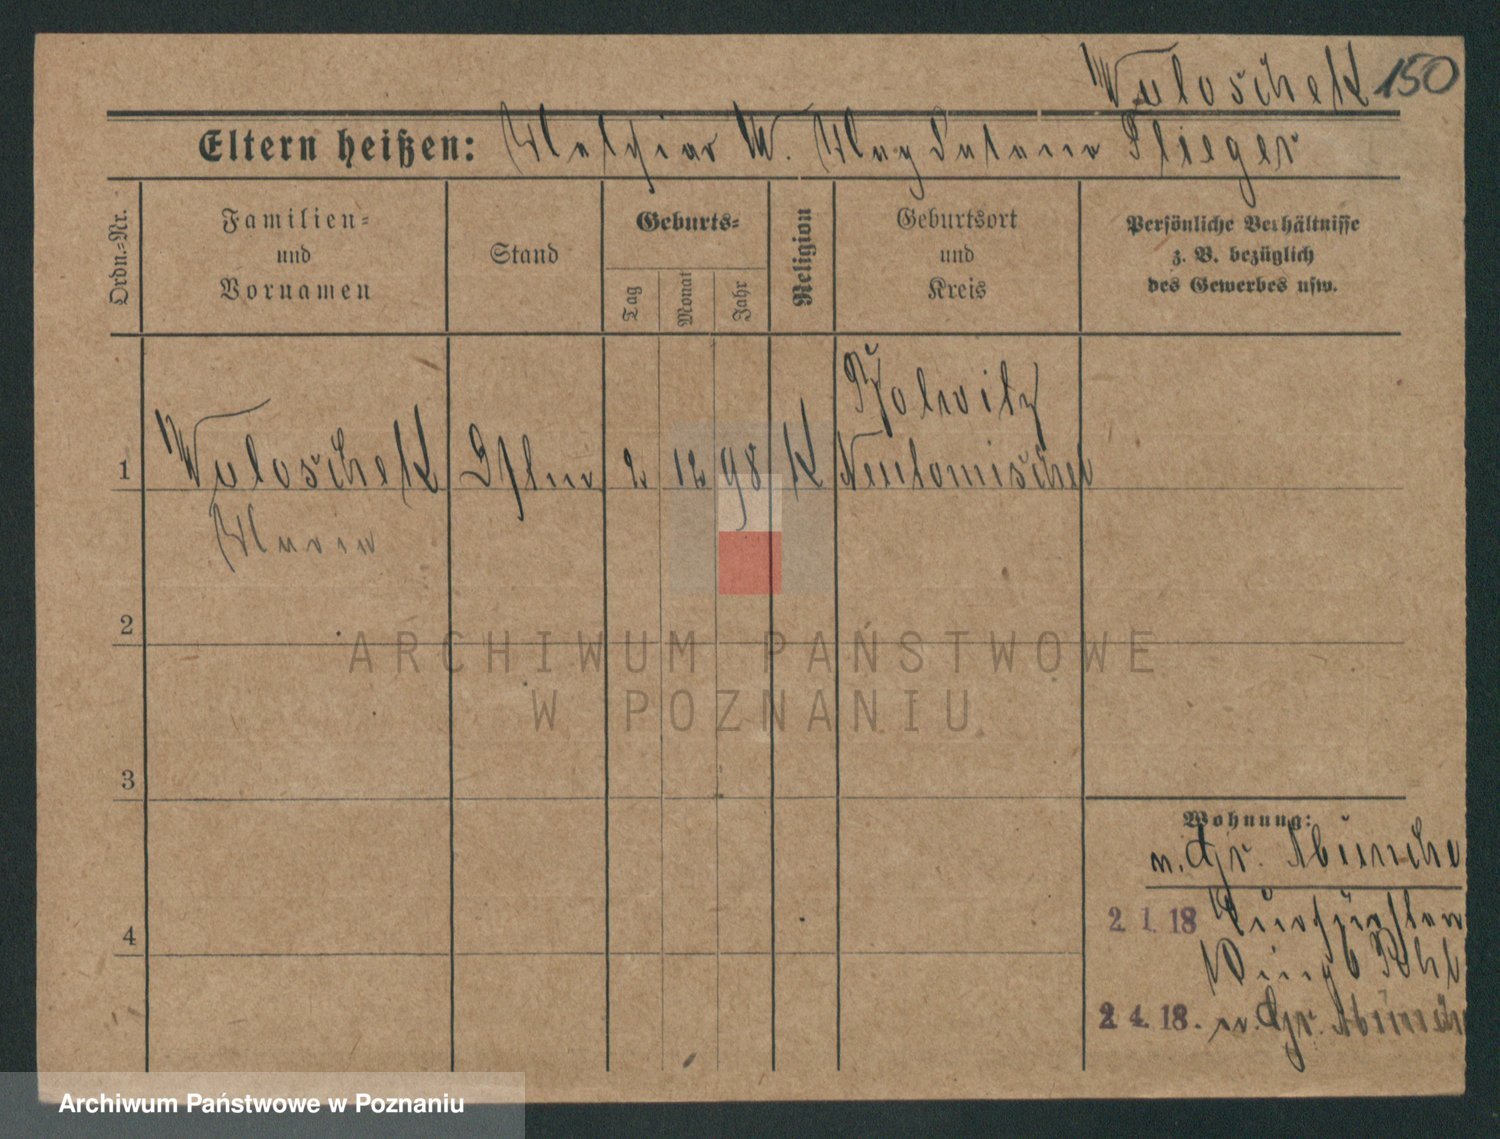 Wuloschek 150
Eltern heißen: Melchior W. Magdalena Flieger
Ordn.=Nr.
Familien=
und
Vornamen
Stand
Geburts=
Tag
Monat
Jahr
Religion
Geburtsort
und
Kreis
Persönliche Verhältnisse
z. B. bezüglich
des Gewerbes usw.
1
Wuloschek
2
12
98
K
Neutomischel
Maria
2
3
4
Wohnung:
n. Gr.
2. 1. 18
2. 4. 18. n. Gr.
ARCHIWUM PAŃSTWOWE
W POZNANIU
Archiwum Państwowe w Poznaniu